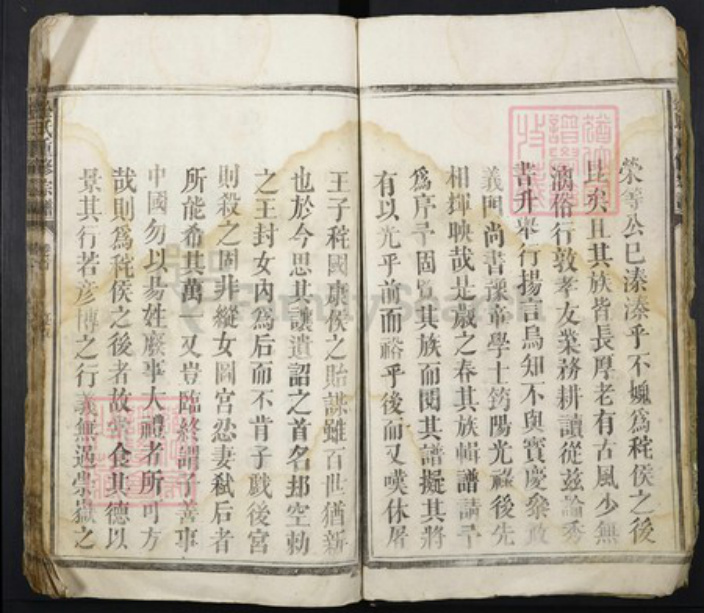 榮等公已溱溱乎不媿爲秺侯之後
且矣且其族皆長厚老有古風少無
漓俗行敦孝友業務耕讀從茲論秀
書升舉行揚言烏知不與寶慶
義門尚書諜帝學士筠陽光祿後先
相輝映哉是歲之春其族輯譜請予
爲序予固習其族而閱其譜擬其將
有以光乎前而裕乎後而又嘆休屠
王子秺國康侯之貽謀雖百世猶新
也於今思其讓遺詔之首名邦空勅
之王封女內爲后而不肯子戲後宮
則殺之固非縱女圖宮忍妻弒后者
所能希其萬一又豈臨終謂子善事
中國勿以易姓廢事大禮者所可方
哉則爲秺侯之後者故當食其德以
景其行若彥博之行義無過崇嶽之